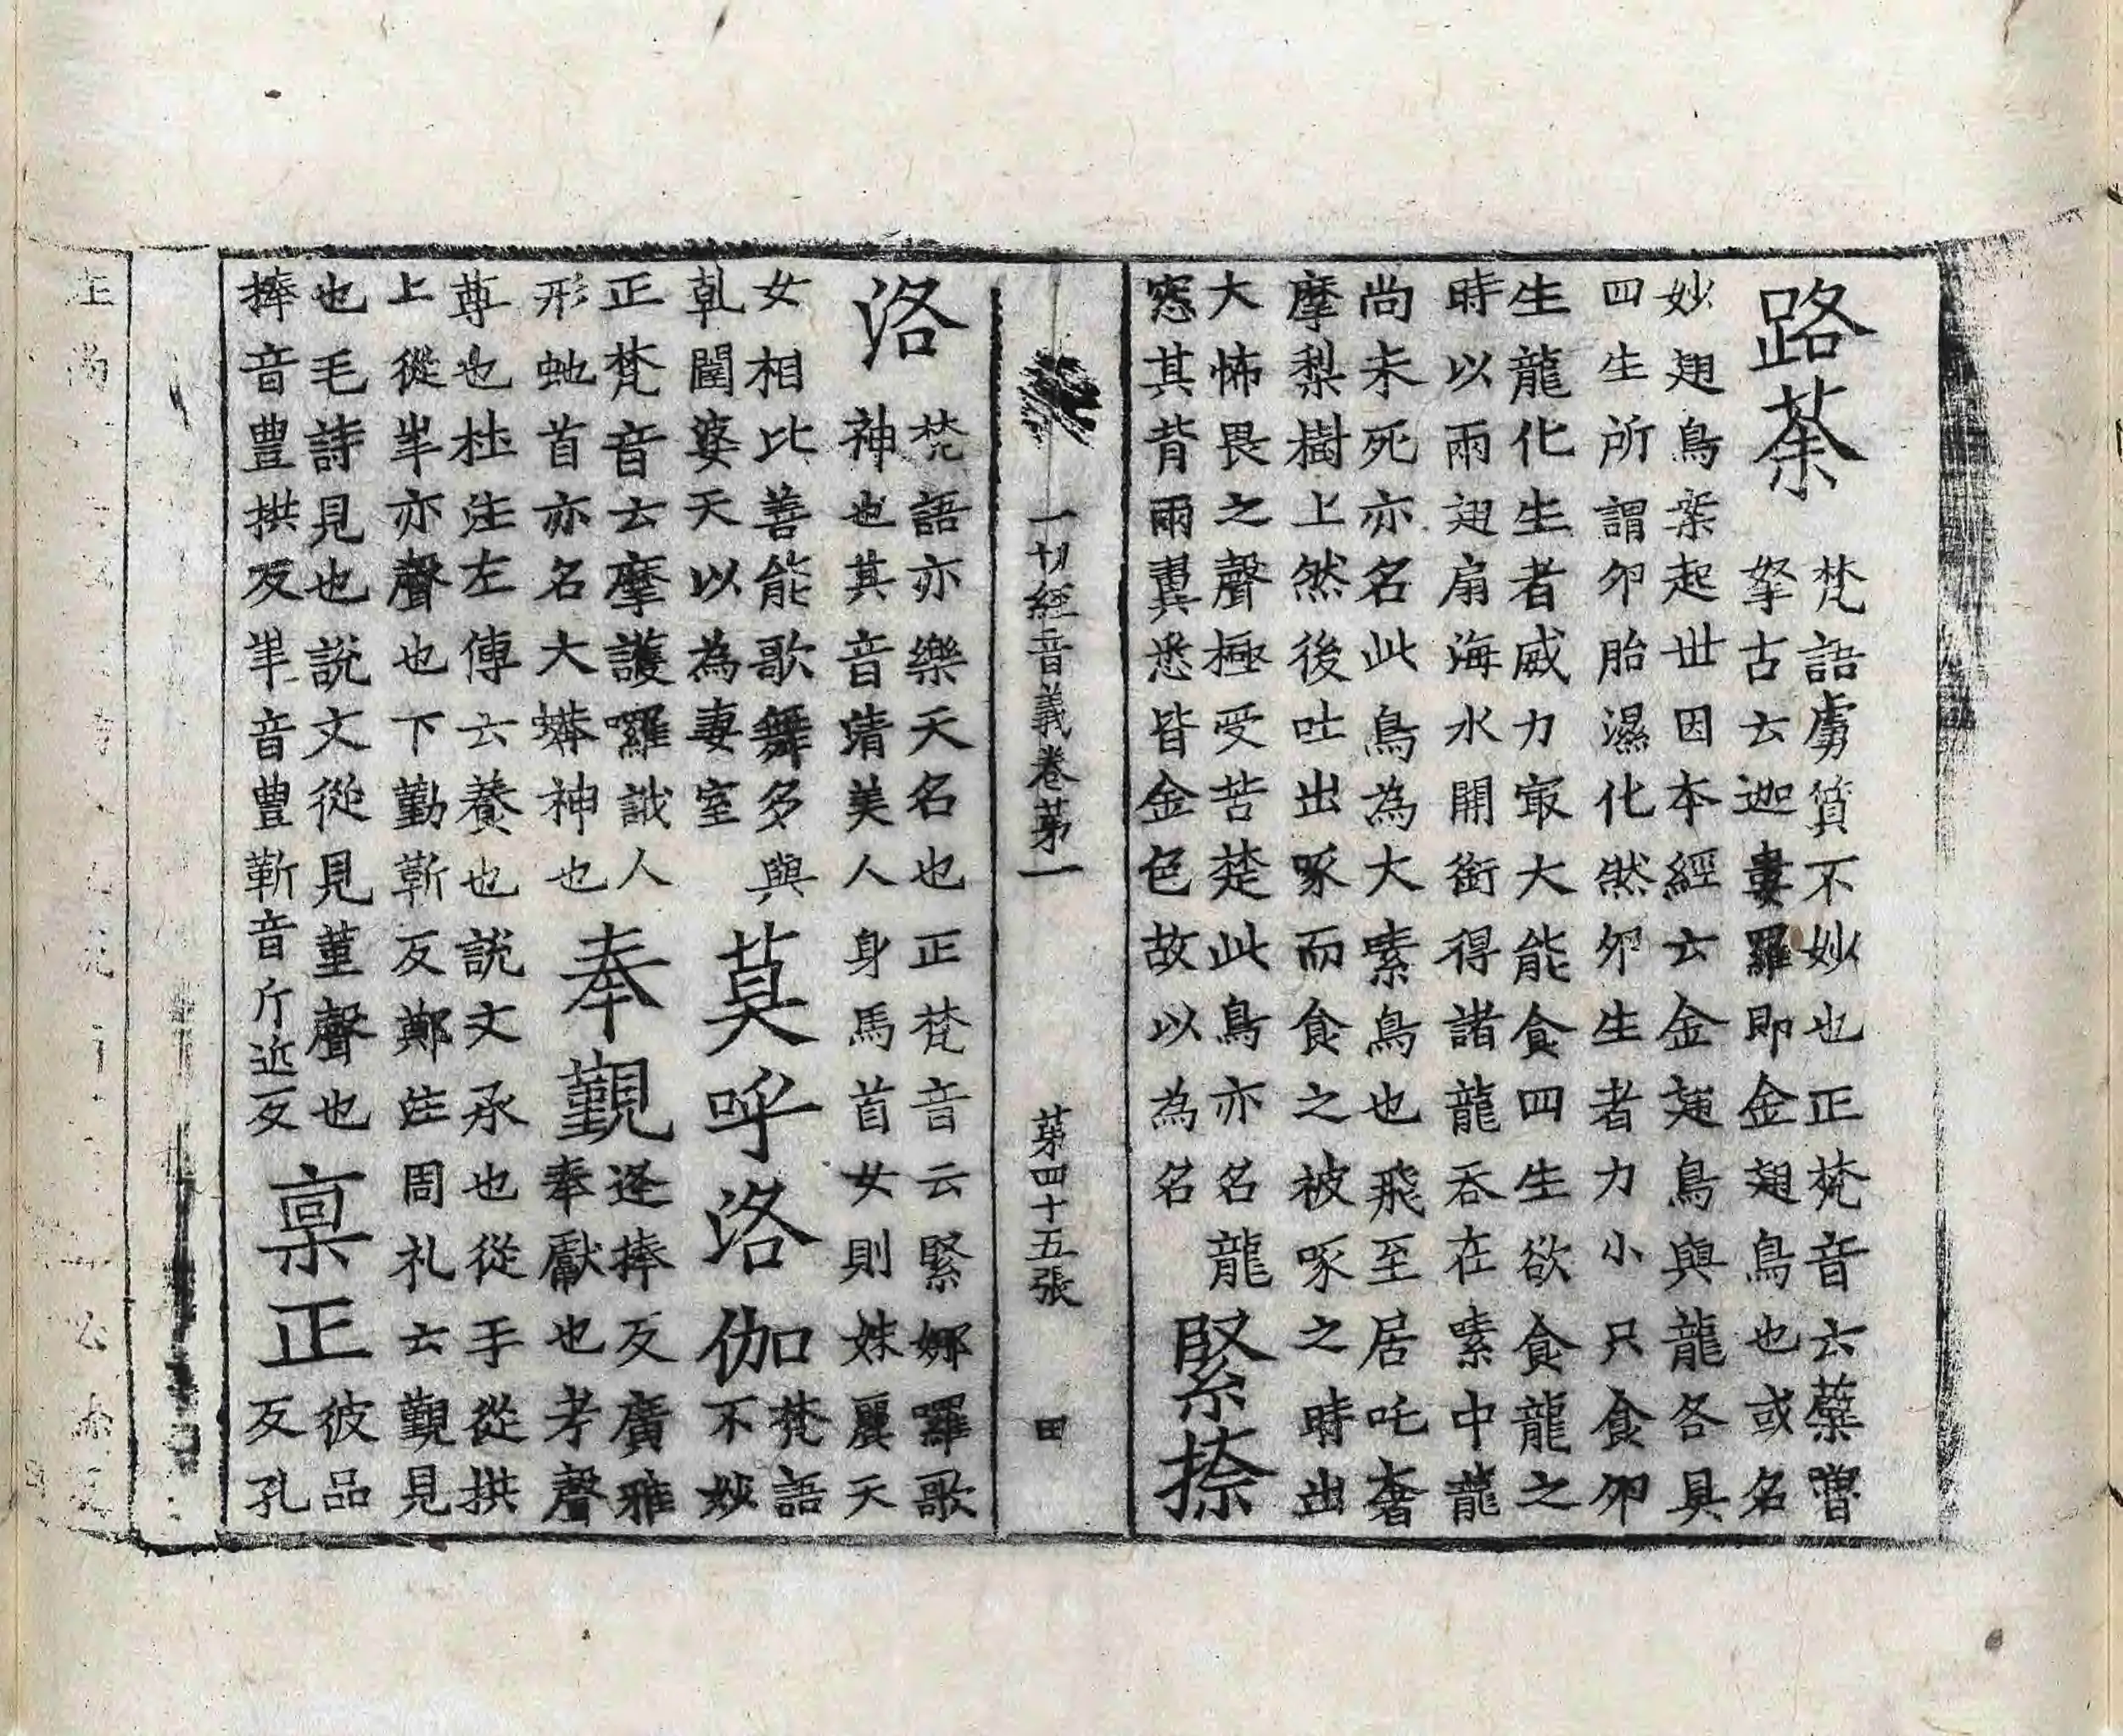 路荼
梵語虜質不妙也正梵音云蘗嚕
拏古云迦婁羅即金翅鳥也或名
妙翅鳥案起世因本經云金翅鳥與龍各具
四生所謂卵胎濕化然卵生者力小只食卵
生龍化生者威力㝡大能食四生欲食龍之
時以兩翅扇海水開銜得諸龍吞在嗉中龍
尚未死亦名此鳥為大嗉鳥也飛至居吒奢
摩梨樹上然後吐出啄而食之被啄之時出
大怖畏之聲極受苦楚此鳥亦名龍
窓其背兩翼悉皆金色故以為名
緊捺
一切經音義卷苐一 苐四十五張 田
洛
梵語亦樂天名也正梵音云緊娜囉歌
神也其音清美人身馬首女則姝麗天
女相比善能歌舞多與
乾闥婆天以為妻室
莫呼洛伽
梵語
不妙
正梵音云摩護囉誐人
形虵首亦名大蟒神也
奉覲
逄捧反廣雅
奉獻也考聲
尊也杜注左傳云養也說文承也從手從拱
上從半亦聲也下勤靳反鄭注周礼云覲見
也毛詩見也說文從見堇聲也
捧音豊拱反半音豊靳音斤近反
稟正
彼品
反孔